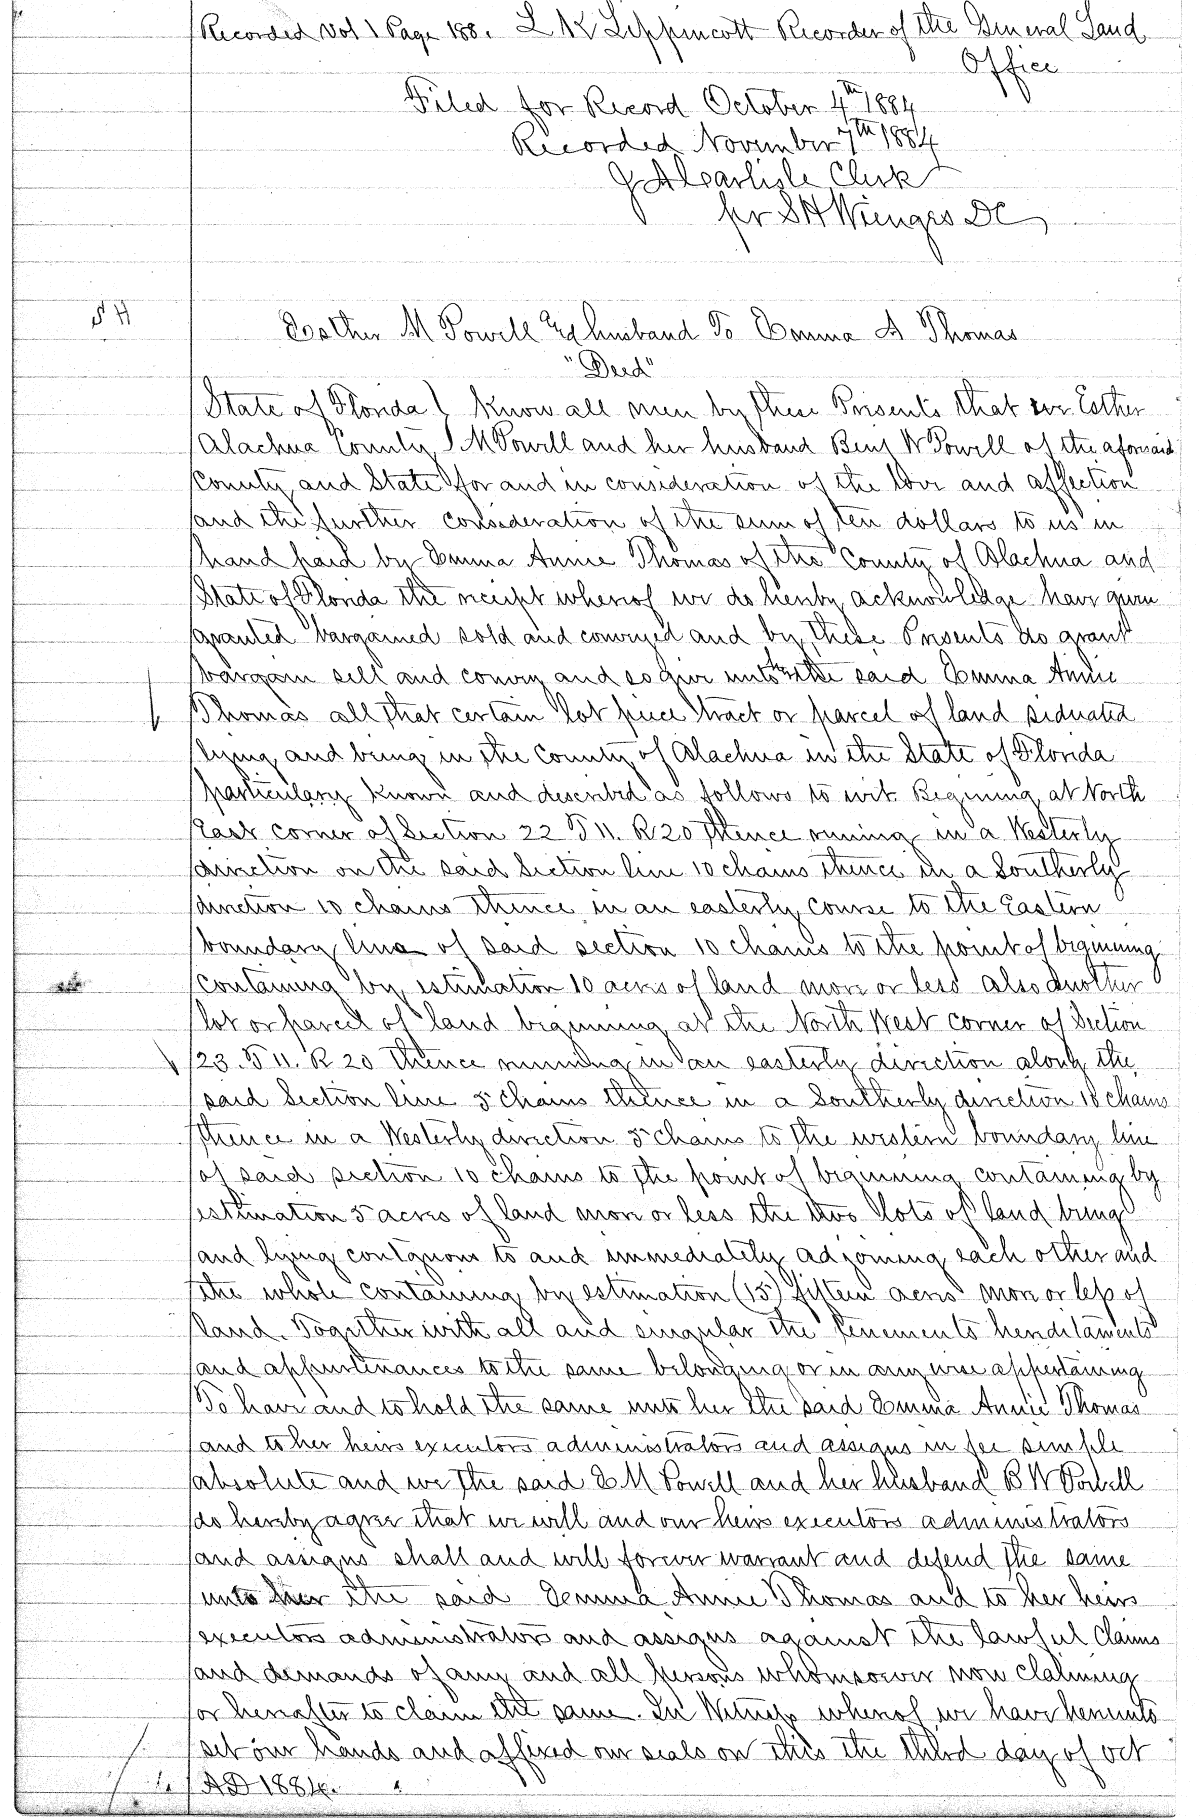 Recorded Vol 1 Page 188. L K Lippincott Recorder of the General Land
Office
Filed for Record October 4th 1884
Recorded November 7th 1884
J A Carlisle Clerk
pr S H Wienges DC
Esther M Powell & husband To Emma A Thomas
"Deed"
State of Florida } Know all men by these Presents that we Esther
Alachua County } M Powell and her husband Benj W Powell of the aforesaid
County and State for and in consideration of the love and affection
and the further consideration of the sum of ten dollars to us in
hand paid by Emma Annie Thomas of the County of Alachua and
State of Florida the receipt whereof we do hereby acknowledge have given
granted bargained sold and conveyed and by these Presents do grant
bargain sell and convey and so give unto the said Emma Annie
Thomas all that certain lot piece tract or parcel of land siduated
lying and being in the County of Alachua in the State of Florida
particulary known and described as follows to wit. Begining at North
East corner of Section 22 T 11. R 20 thence runing in a Westerly
direction on the said Section line 10 chains thence in a Southerly
direction 10 chains thence in an easterly course to the Eastern
boundary line of said section 10 chains to the point of beginning
containing by estimation 10 acres of land more or less also another
lot or parcel of land beginning at the North West corner of Section
23. T 11. R 20 thence running in an easterly direction along the
said Section line 5 chains thence in a Southerly direction 10 chains
thence in a Westerly direction 5 chains to the western boundary line
of said section 10 chains to the point of beginning containing by
estimation 5 acres of land more or less the two lots of land being
and lying contiguous to and immediately adjoining each other and
the whole containing by estimation (15) fifteen acres more or less of
land. Together with all and singular the tenements hereditaments
and appurtenances to the same belonging or in any wise appertaining
To have and to hold the same unto her the said Emma Annie Thomas
and to her heirs executors administrators and assigns in fee simple
absolute and we the said E M Powell and her husband B W Powell
do hereby agree that we will and our heirs executors administrators
and assigns shall and will forever warrant and defend the same
unto her the said Emma Annie Thomas and to her heirs
executors administrators and assigns against the lawful claims
and demands of any and all persons whomsoever now claiming
or hereafter to claim the same. In Witness whereof we have hereunto
set our hands and affixed our seals on this the third day of Oct
AD 1884.